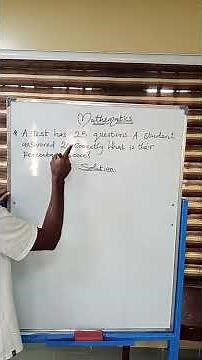 Mathematics
* A test has 25 questions. A student
answered 2 Correctly. What is their
Percentage core?
Solution